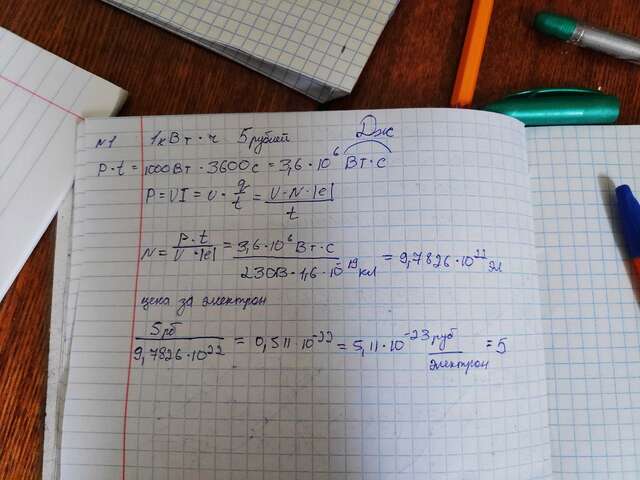 №1 1кВт·ч 5рублей Дж
P·t = 1000Вт · 3600с = 3,6·10⁶ Вт·с
P = UI = U · q/t = U·N·|e|/t
N = P·t/U·|e| = 3,6·10⁶ Вт·с/230В·1,6·10⁻¹⁹ кл = 9,7826·10²² Эл
цена за электрон
5рб/9,7826·10²² = 0,511·10⁻²² = 5,11·10⁻²³ руб/электрон = 5